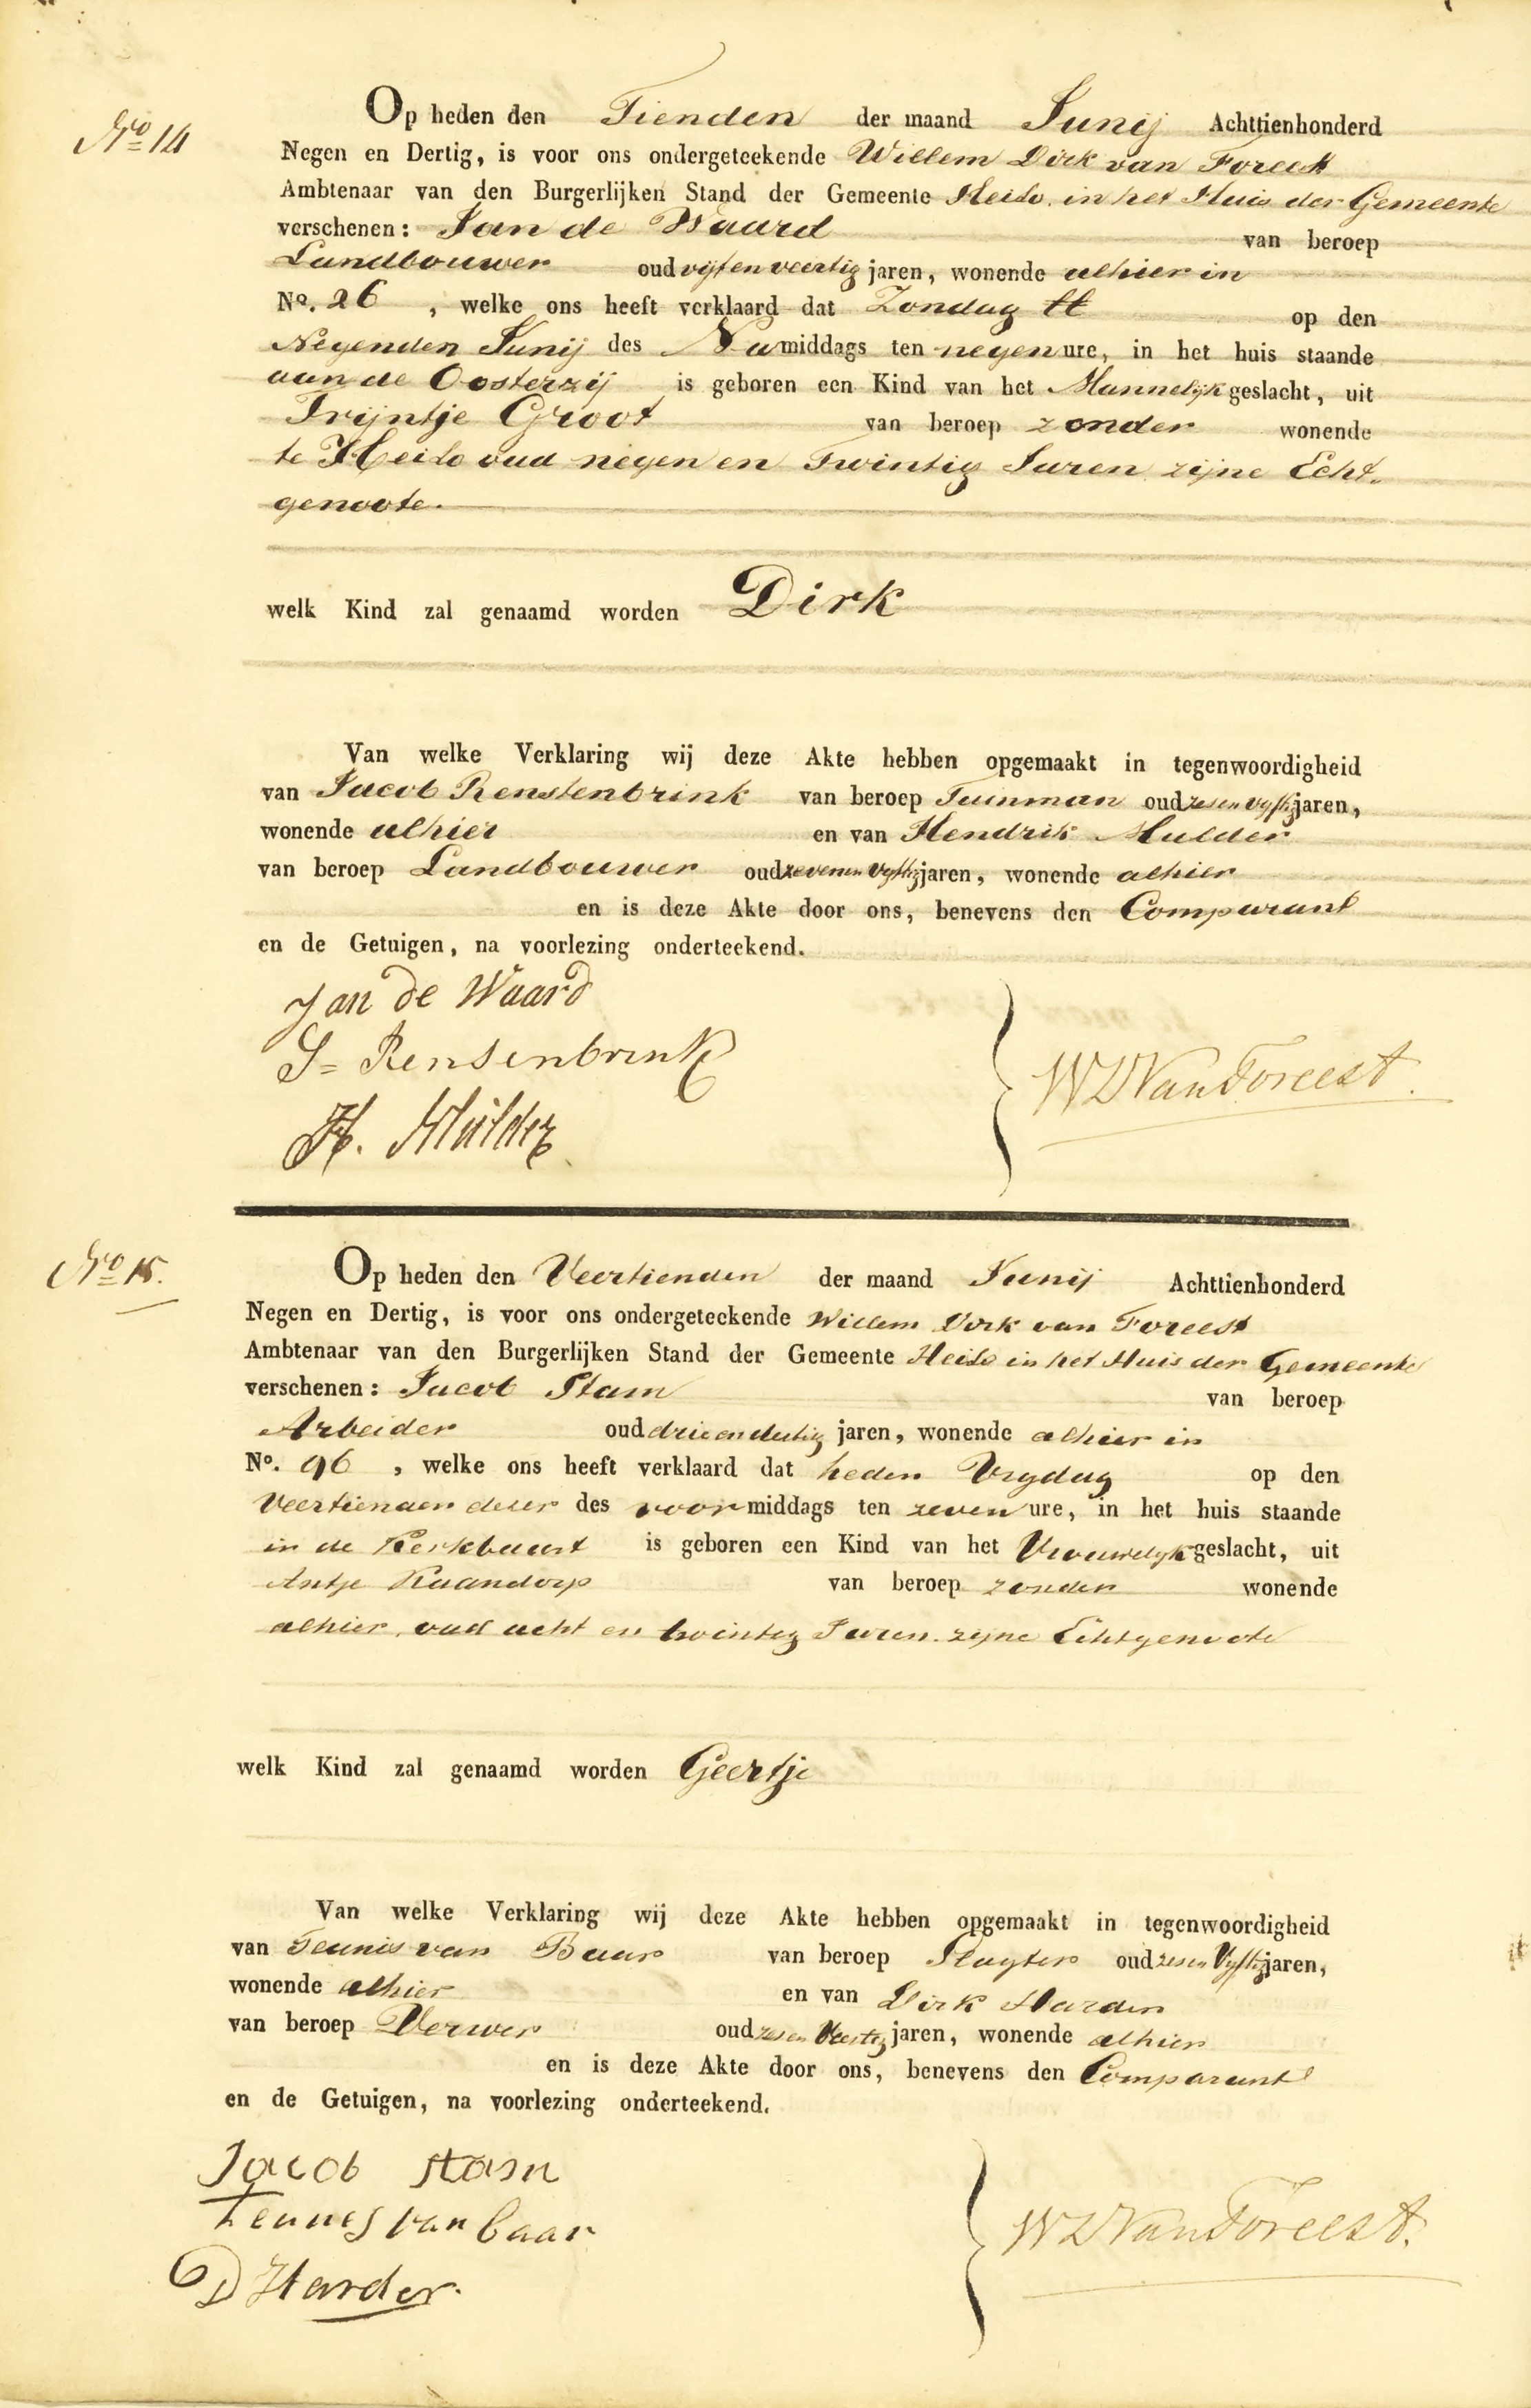 No 14
Op heden den Tienden der maand Junij Achttienhonderd
Negen en Dertig, is voor ons ondergeteekende Willem Dirk van Foreest
Ambtenaar van den Burgerlijken Stand der Gemeente Heilo in het Huis der Gemeente
verschenen: Jan de Waard van beroep
Landbouwer oud vijf en veertig jaren, wonende alhier in
No. 26, welke ons heeft verklaard dat Zondag ll op den
Negenden Junij des Namiddags ten negen ure, in het huis staande
aan de Oosterzij is geboren een Kind van het Mannelijk geslacht, uit
Trijntje Groot van beroep zonder wonende
te Heilo oud negen en Twintig Jaren zijne Echt-
genoote.
welk Kind zal genaamd worden Dirk
Van welke Verklaring wij deze Akte hebben opgemaakt in tegenwoordigheid
van Jacob Renstenbrink van beroep Tuinman oud zes en vyftig jaren,
wonende alhier en van Hendrik Mulder
van beroep Landbouwer oud zeven en vyftig jaren, wonende alhier
en is deze Akte door ons, benevens den Comparant
en de Getuigen, na voorlezing onderteekend.
Jan de Waard
J= Rensenbrink
H. Mulder
WDVanForeest.
No 15.
Op heden den Veertienden der maand Junij Achttienhonderd
Negen en Dertig, is voor ons ondergeteekende Willem Dirk van Foreest
Ambtenaar van den Burgerlijken Stand der Gemeente Heilo in het Huis der Gemeente
verschenen: Jacob Stam van beroep
Arbeider oud drie en dertig jaren, wonende alhier in
No. 96, welke ons heeft verklaard dat heden Vrydag op den
Veertienden dezer des voormiddags ten zeven ure, in het huis staande
in de Kerkbuurt is geboren een Kind van het Vrouwelyk geslacht, uit
Antje Kaandorp van beroep zonder wonende
alhier, oud acht en twintig Jaren. zijne Echtgenoote
welk Kind zal genaamd worden Geertje
Van welke Verklaring wij deze Akte hebben opgemaakt in tegenwoordigheid
van Teunis van Baar van beroep Slagter oud zes en Vyftig jaren,
wonende alhier en van Dirk Harder
van beroep Verwer oud zes en Veertig jaren, wonende alhier
en is deze Akte door ons, benevens den Comparant
en de Getuigen, na voorlezing onderteekend.
Jacob Stam
Teunes van baar
D Harder.
WDVanForeest.